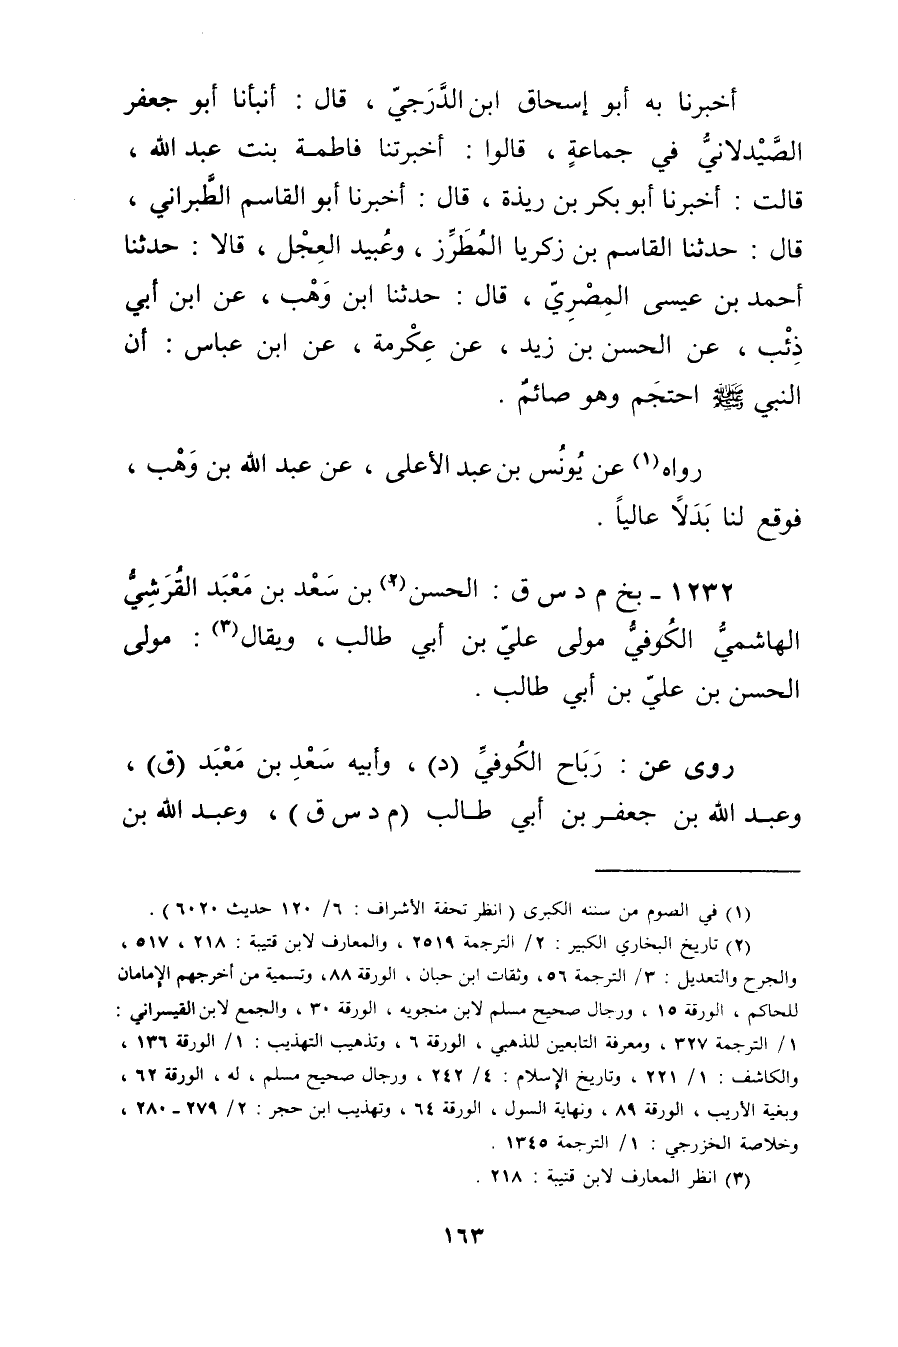 أخبرنا به أبو إسحاق ابن الدَّرَجيّ ، قال : أنبأنا أبو جعفر
الصَّيْدلانيُّ في جماعةٍ ، قالوا : أخبرتنا فاطمة بنت عبد الله ،
قالت : أخبرنا أبو بكر بن ريذة ، قال : أخبرنا أبو القاسم الطَّبراني ،
قال : حدثنا القاسم بن زكريا المُطَرِّز ، وعُبيد العِجْل ، قالا : حدثنا
أحمد بن عيسى المِصْرِيّ ، قال : حدثنا ابن وَهْب ، عن ابن أبي
ذِئْب ، عن الحسن بن زيد ، عن عِكْرمة ، عن ابن عباس : أن
النبي ﷺ احتجَم وهو صائمٌ .
رواه(١) عن يُونُس بن عبد الأعلى ، عن عبد الله بن وَهْب ،
فوقع لنا بَدَلاً عالياً .
١٢٣٢ - بخ م د س ق : الحسن(٢) بن سَعْد بن مَعْبَد القُرَشِيُّ
الهاشميُّ الكُوفيُّ مولى عليّ بن أبي طالب ، ويقال(٣) : مولى
الحسن بن عليّ بن أبي طالب .
روى عن : رَبَاح الكُوفيِّ (د) ، وأبيه سَعْدِ بن مَعْبَد (ق) ،
وعبد الله بن جعفر بن أبي طالب (م د س ق) ، وعبد الله بن
(١) في الصوم من سننه الكبرى (انظر تحفة الأشراف : ٦/ ١٢٠ حديث ٦٠٢٠) .
(٢) تاريخ البخاري الكبير : ٢/ الترجمة ٢٥١٩ ، والمعارف لابن قتيبة : ٢١٨ ، ٥١٧ ،
والجرح والتعديل : ٣/ الترجمة ٥٦ ، وثقات ابن حبان ، الورقة ٨٨، وتسمية من أخرجهم الإمامان
للحاكم ، الورقة ١٥ ، ورجال صحيح مسلم لابن منجويه ، الورقة ٣٠ ، والجمع لابن القيسراني :
١/ الترجمة ٣٢٧ ، ومعرفة التابعين للذهبي ، الورقة ٦ ، وتذهيب التهذيب : ١/ الورقة ١٣٦ ،
والكاشف : ١/ ٢٢١ ، وتاريخ الإسلام : ٤/ ٢٤٢ ، ورجال صحيح مسلم ، له ، الورقة ٦٢ ،
وبغية الأريب ، الورقة ٨٩ ، ونهاية السول ، الورقة ٦٤ ، وتهذيب ابن حجر : ٢/ ٢٧٩ - ٢٨٠ ،
وخلاصة الخزرجي : ١/ الترجمة ١٣٤٥ .
(٣) انظر المعارف لابن قتيبة : ٢١٨ .
١٦٣